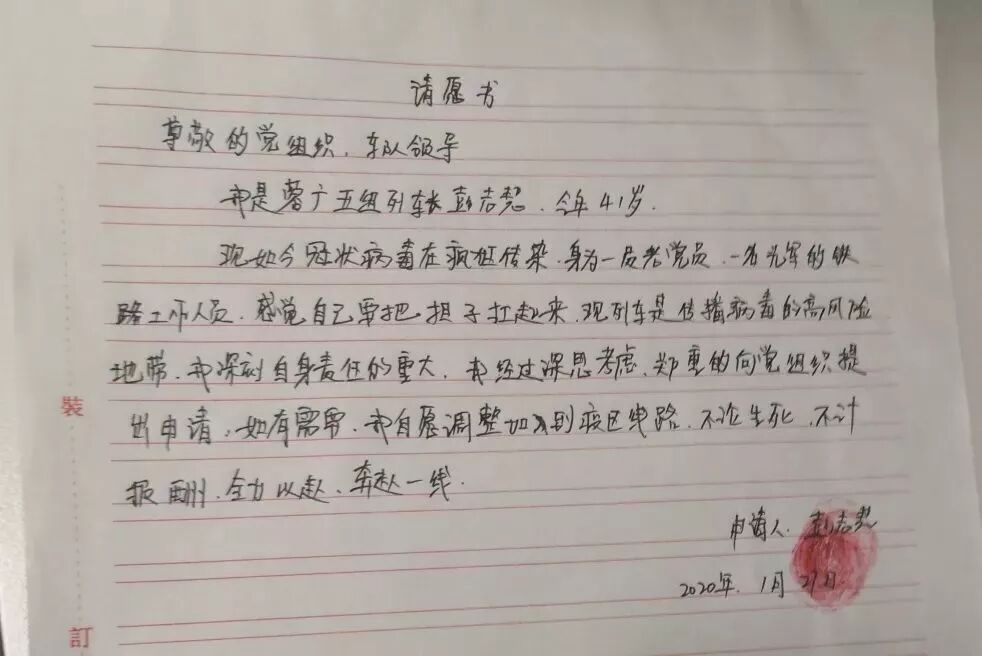 请愿书
尊敬的党组织、车队领导
我是蓉广五组列车长彭志, 今年41岁.
现如今冠状病毒在疯狂传染.身为一员老党员.一名光军的铁
路工作人员.感觉自己要把担子扛起来.现列车是传播病毒的高风险
地带.我深刻自身责任的重大.我经过深思考虑.郑重的向党组织提
出申请.如有需要.我自愿调整加入到疫区线路.不论生死.不计
报酬.全力以赴.奔赴一线.
申请人.彭志
2020年.1月27日.
裝
訂